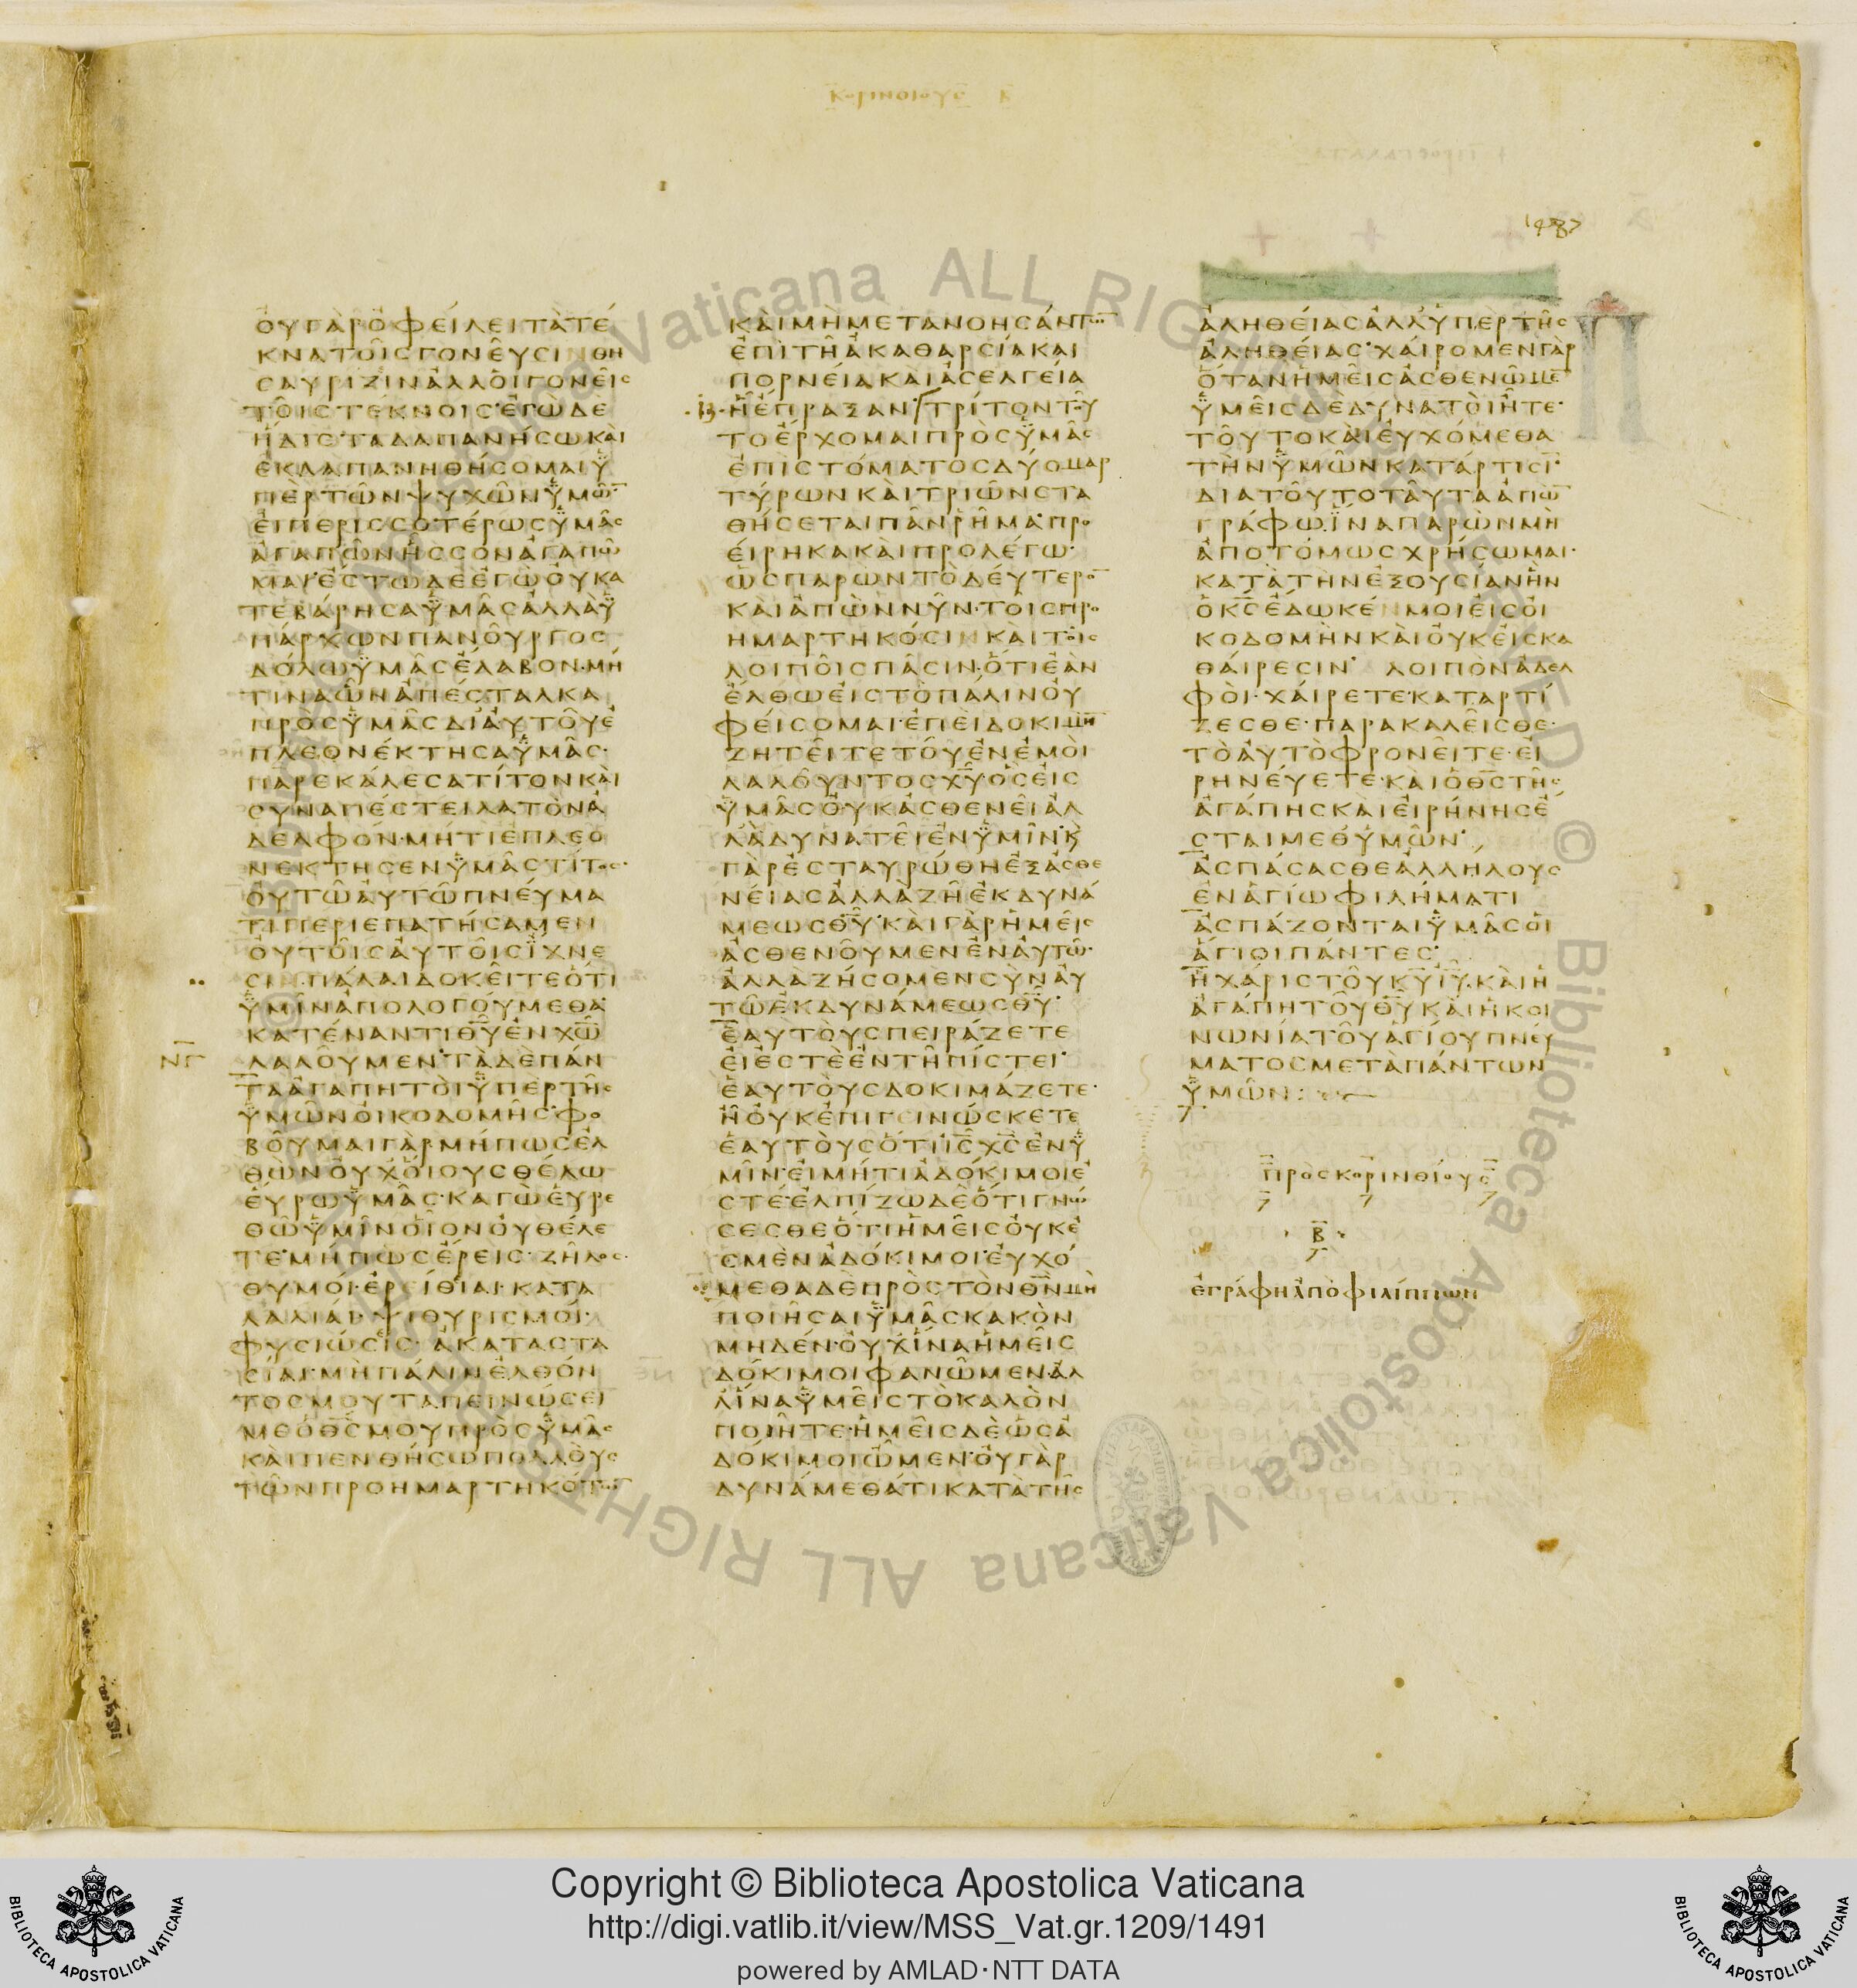 ΚΟΡΙΝΘΙΟΥΣ Β
1487
ΟΥΓΑΡΟΦΕΙΛΕΙΤΑΤΕ
ΚΝΑΤΟΙϹΓΟΝΕΥϹΙΝΘΗ
ϹΑΥΡΙΖΙΝΑΛΛΟΙΓΟΝΕΙϹ
ΤΟΙϹΤΕΚΝΟΙϹ·ΕΓΩΔΕ
ΗΔΙϹΤΑΔΑΠΑΝΗϹΩΚΑΙ
ΕΚΔΑΠΑΝΗΘΗϹΟΜΑΙΫ
ΠΕΡΤΩΝΨΥΧΩΝΫΜΩ̅·
ΕΙΠΕΡΙϹϹΟΤΕΡΩϹΫΜΑϹ
ΑΓΑΠΩΝΗϹϹΟΝΑΓΑΠΩ
ΜΑΙ·ΕϹΤΩΔΕΕΓΩΟΥΚΑ
ΤΕΒΑΡΗϹΑΫΜΑϹΑΛΛΑΫ
ΠΑΡΧΩΝΠΑΝΟΥΡΓΟϹ
ΔΟΛΩΫΜΑϹΕΛΑΒΟΝ·ΜΗ
ΤΙΝΑΩΝΑΠΕϹΤΑΛΚΑ
ΠΡΟϹΫΜΑϹΔΙΑΥΤΟΥΕ
ΠΛΕΟΝΕΚΤΗϹΑΫΜΑϹ·
ΠΑΡΕΚΑΛΕϹΑΤΙΤΟΝΚΑΙ
ϹΥΝΑΠΕϹΤΕΙΛΑΤΟΝΑ
ΔΕΛΦΟΝ·ΜΗΤΙΕΠΛΕΟ
ΝΕΚΤΗϹΕΝΫΜΑϹΤΙΤΟϹ·
ΟΥΤΩΑΥΤΩΠΝΕΥΜΑ
ΤΙΠΕΡΙΕΠΑΤΗϹΑΜΕΝ
ΟΥΤΟΙϹΑΥΤΟΙϹΪΧΝΕ
ϹΙΝ·ΠΑΛΑΙΔΟΚΕΙΤΕΟΤΙ
ΫΜΙΝΑΠΟΛΟΓΟΥΜΕΘΑ·
ΚΑΤΕΝΑΝΤΙΘ̅Υ̅ΕΝΧ̅Ω̅
Ν̅Γ̅ ΛΑΛΟΥΜΕΝ·ΤΑΔΕΠΑΝ
ΤΑΑΓΑΠΗΤΟΙΫΠΕΡΤΗϹ
ΫΜΩΝΟΙΚΟΔΟΜΗϹ·ΦΟ
ΒΟΥΜΑΙΓΑΡΜΗΠΩϹΕΛ
ΘΩΝΟΥΧΟΙΟΥϹΘΕΛΩ
ΕΥΡΩΫΜΑϹ·ΚΑΓΩΕΥΡΕ
ΘΩΫΜΙΝΟΙΟΝΟΥΘΕΛΕ
ΤΕ·ΜΗΠΩϹΕΡΕΙϹ·ΖΗΛΟϹ·
ΘΥΜΟΙ·ΕΡΕΙΘΙΑΙ·ΚΑΤΑ
ΛΑΛΙΑΙ·ΨΙΘΥΡΙϹΜΟΙ·
ΦΥϹΙΩϹΙϹ·ΑΚΑΤΑϹΤΑ
ϹΙΑΙ·ΜΗΠΑΛΙΝΕΛΘΟΝ
ΤΟϹΜΟΥΤΑΠΕΙΝΩϹΕΙ
ΜΕΟΘ̅Ϲ̅ΜΟΥΠΡΟϹΫΜΑϹ
ΚΑΙΠΕΝΘΗϹΩΠΟΛΛΟΥϹ
ΤΩΝΠΡΟΗΜΑΡΤΗΚΟΤΩ̅
ΚΑΙΜΗΜΕΤΑΝΟΗϹΑΝΤΩ̅
ΕΠΙΤΗΑΚΑΘΑΡϹΙΑΚΑΙ
ΠΟΡΝΕΙΑΚΑΙΑϹΕΛΓΕΙΑ
ΗΕΠΡΑΞΑΝ·ΤΡΙΤΟΝΤΟΥ
ΤΟΕΡΧΟΜΑΙΠΡΟϹΫΜΑϹ
ΕΠΙϹΤΟΜΑΤΟϹΔΥΟΜΑΡ
ΤΥΡΩΝΚΑΙΤΡΙΩΝϹΤΑ
ΘΗϹΕΤΑΙΠΑΝΡΗΜΑ·ΠΡΟ
ΕΙΡΗΚΑΚΑΙΠΡΟΛΕΓΩ·
ΩϹΠΑΡΩΝΤΟΔΕΥΤΕΡΟ̅
ΚΑΙΑΠΩΝΝΥΝ·ΤΟΙϹΠΡΟ
ΗΜΑΡΤΗΚΟϹΙΝΚΑΙΤΟΙϹ
ΛΟΙΠΟΙϹΠΑϹΙΝ·ΟΤΙΕΑΝ
ΕΛΘΩΕΙϹΤΟΠΑΛΙΝΟΥ
ΦΕΙϹΟΜΑΙ·ΕΠΕΙΔΟΚΙΜΗ̅
ΖΗΤΕΙΤΕΤΟΥΕΝΕΜΟΙ
ΛΑΛΟΥΝΤΟϹΧ̅Υ̅ΟϹΕΙϹ
ΫΜΑϹΟΥΚΑϹΘΕΝΕΙΑΛ
ΛΑΔΥΝΑΤΕΙΕΝΫΜΙΝ·Κ
ΓΑΡΕϹΤΑΥΡΩΘΗΕΞΑϹΘΕ
ΝΕΙΑϹΑΛΛΑΖΗΕΚΔΥΝΑ
ΜΕΩϹΘ̅Υ̅·ΚΑΙΓΑΡΗΜΕΙϹ
ΑϹΘΕΝΟΥΜΕΝΕΝΑΥΤΩ·
ΑΛΛΑΖΗϹΟΜΕΝϹΥΝΑΥ
ΤΩΕΚΔΥΝΑΜΕΩϹΘ̅Υ̅·
ΕΑΥΤΟΥϹΠΕΙΡΑΖΕΤΕ
ΕΙΕϹΤΕΕΝΤΗΠΙϹΤΕΙ·
ΕΑΥΤΟΥϹΔΟΚΙΜΑΖΕΤΕ·
ΗΟΥΚΕΠΙΓΕΙΝΩϹΚΕΤΕ
ΕΑΥΤΟΥϹΟΤΙΙ̅Ϲ̅Χ̅Ϲ̅ΕΝΫ
ΜΙΝ·ΕΙΜΗΤΙΑΔΟΚΙΜΟΙΕ
ϹΤΕ·ΕΛΠΙΖΩΔΕΟΤΙΓΝΩ
ϹΕϹΘΕΟΤΙΗΜΕΙϹΟΥΚΕ
ϹΜΕΝΑΔΟΚΙΜΟΙ·ΕΥΧΟ
ΜΕΘΑΔΕΠΡΟϹΤΟΝΘ̅Ν̅ΜΗ
ΠΟΙΗϹΑΙΫΜΑϹΚΑΚΟΝ
ΜΗΔΕΝ·ΟΥΧΙΝΑΗΜΕΙϹ
ΔΟΚΙΜΟΙΦΑΝΩΜΕΝ·ΑΛ
ΛΙΝΑΫΜΕΙϹΤΟΚΑΛΟΝ
ΠΟΙΗΤΕ·ΗΜΕΙϹΔΕΩϹΑ
ΔΟΚΙΜΟΙΩΜΕΝ·ΟΥΓΑΡ
ΔΥΝΑΜΕΘΑΤΙΚΑΤΑΤΗϹ
ΑΛΗΘΕΙΑϹΑΛΛΑΫΠΕΡΤΗϹ
ΑΛΗΘΕΙΑϹ·ΧΑΙΡΟΜΕΝΓΑΡ
ΟΤΑΝΗΜΕΙϹΑϹΘΕΝΩΜΕ̅
ΫΜΕΙϹΔΕΔΥΝΑΤΟΙΗΤΕ·
ΤΟΥΤΟΚΑΙΕΥΧΟΜΕΘΑ
ΤΗΝΫΜΩΝΚΑΤΑΡΤΙϹΙ̅·
ΔΙΑΤΟΥΤΟΤΑΥΤΑΑΠΩ̅
ΓΡΑΦΩ·ΪΝΑΠΑΡΩΝΜΗ
ΑΠΟΤΟΜΩϹΧΡΗϹΩΜΑΙ·
ΚΑΤΑΤΗΝΕΞΟΥϹΙΑΝΗΝ
ΟΚ̅Ϲ̅ΕΔΩΚΕΝΜΟΙΕΙϹΟΙ
ΚΟΔΟΜΗΝΚΑΙΟΥΚΕΙϹΚΑ
ΘΑΙΡΕϹΙΝ· ΛΟΙΠΟΝΑΔΕΛ
ΦΟΙ·ΧΑΙΡΕΤΕ·ΚΑΤΑΡΤΙ
ΖΕϹΘΕ·ΠΑΡΑΚΑΛΕΙϹΘΕ·
ΤΟΑΥΤΟΦΡΟΝΕΙΤΕ·ΕΙ
ΡΗΝΕΥΕΤΕ·ΚΑΙΟΘ̅Ϲ̅ΤΗϹ
ΑΓΑΠΗϹΚΑΙΕΙΡΗΝΗϹΕ
ϹΤΑΙΜΕΘΫΜΩΝ·
ΑϹΠΑϹΑϹΘΕΑΛΛΗΛΟΥϹ
ΕΝΑΓΙΩΦΙΛΗΜΑΤΙ
ΑϹΠΑΖΟΝΤΑΙΫΜΑϹΟΙ
ΑΓΙΟΙΠΑΝΤΕϹ·
ΗΧΑΡΙϹΤΟΥΚ̅Υ̅Ι̅Υ̅·ΚΑΙΗ
ΑΓΑΠΗΤΟΥΘ̅Υ̅ΚΑΙΗΚΟΙ
ΝΩΝΙΑΤΟΥΑΓΙΟΥΠΝΕΥ
ΜΑΤΟϹΜΕΤΑΠΑΝΤΩΝ
ΫΜΩΝ:
ΠΡΟϹΚΟΡΙΝΘΙΟΥϹ
Β
ΕΓΡΑΦΗΑΠΟΦΙΛΙΠΠΩΝ
Copyright © Biblioteca Apostolica Vaticana
http://digi.vatlib.it/view/MSS_Vat.gr.1209/1491
powered by AMLAD·NTT DATA
BIBLIOTECA APOSTOLICA VATICANA
BIBLIOTECA APOSTOLICA VATICANA